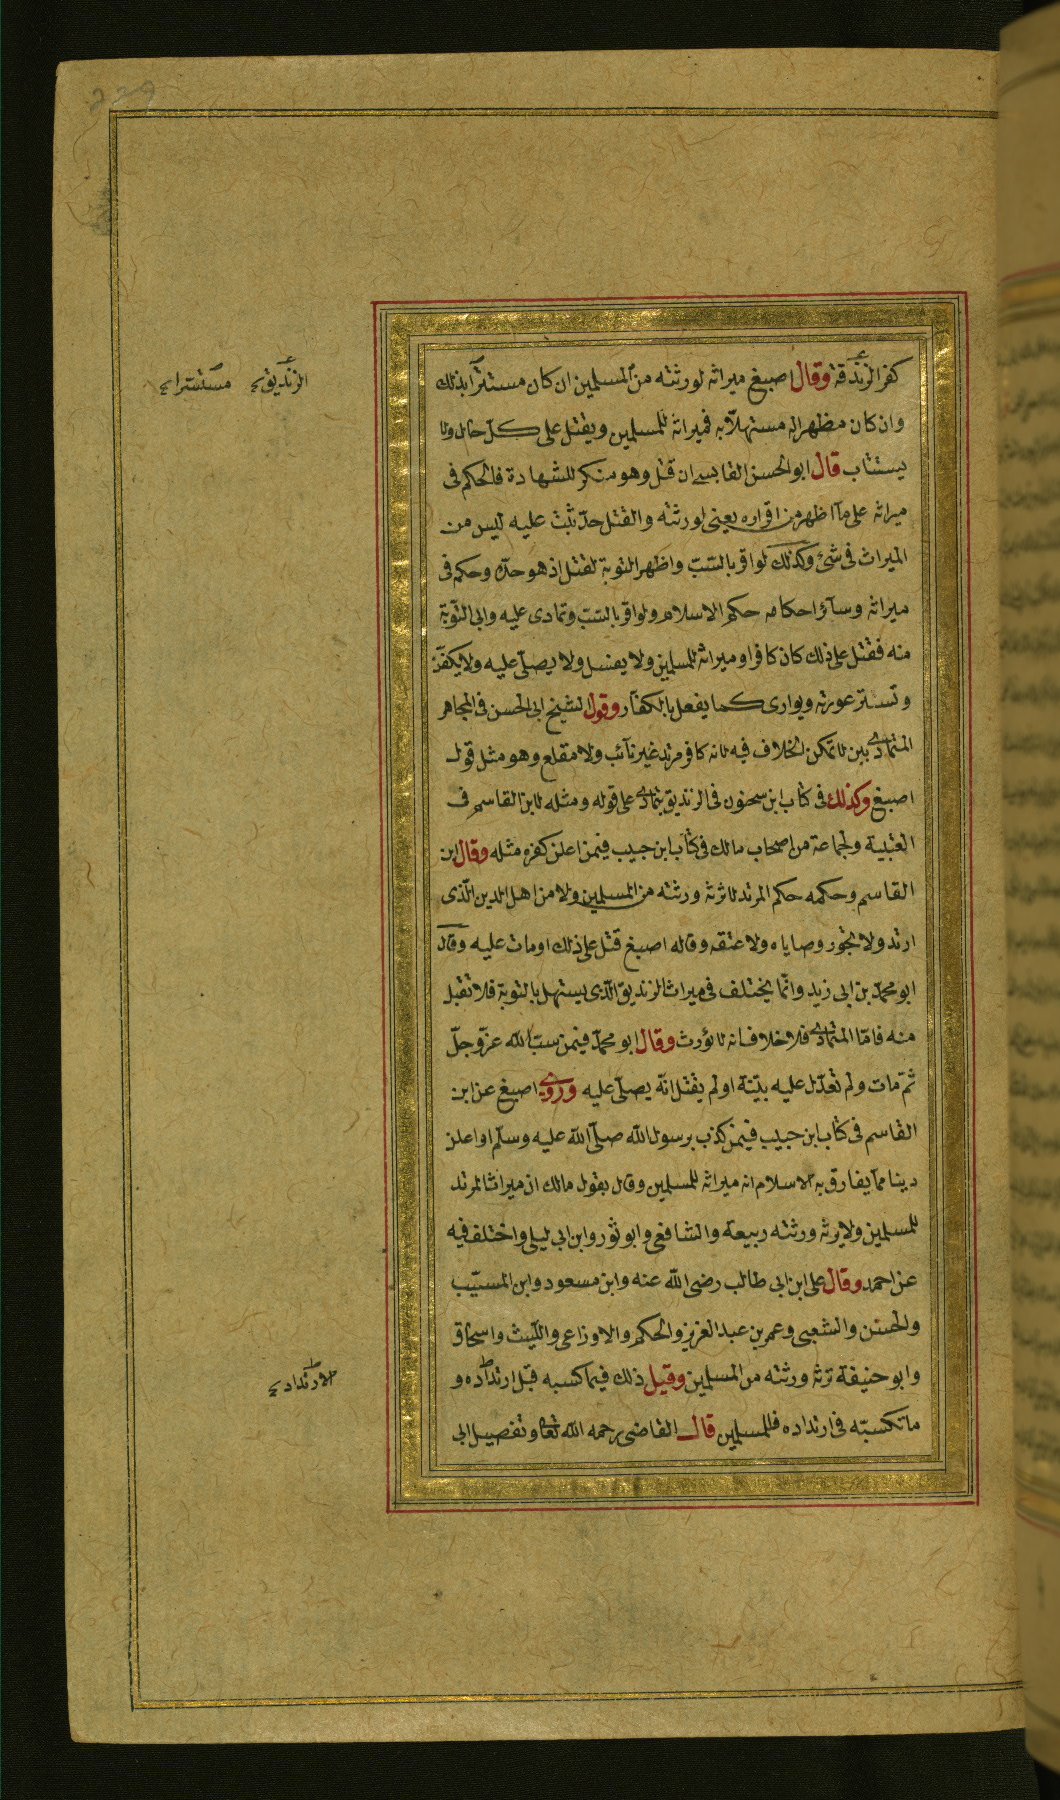 229
كفر الزندقة وقال اصبغ ميراثه لورثته من المسلمين ان كان مستترا بذلك
الزنديق مستسرا
وان كان مظهرا له مستهلا به فميراثه للمسلمين ويقتل على كل حال ولا
يستتاب قال ابو الحسن القابسى ان قتل وهو منكر للشهادة فالحكم فى
ميراثه على ما اظهر من اقراره يعنى لورثته والقتل حد ثبت عليه ليس من
الميراث فى شئ وكذلك لو اقر بالسّبّ واظهر التوبة لقتل اذ هو حدّه وحكمه فى
ميراثه وسآئر احكامه حكم الاسلام ولو اقر بالسّبّ وتمادى عليه وابى التّوبة
منه فقتل على ذلك كان كافرا وميراثه للمسلمين ولا يغسل ولا يصلّى عليه ولا يكفّن
وتستتر عورته ويوارى كما يفعل بالكفّار وقول الشيخ ابى الحسن فى المجاهر
المتمادى بين لا تمكن الخلاف فيه لانه كافر مرتد غير تآئب ولا مقلع وهو مثل قول
اصبغ وكذلك فى كتاب ابن سحنون فى الزنديق يتمادى على قوله ومثله لابن القاسم فى
العتبية ولجماعة من اصحاب مالك فى كتاب ابن حبيب فيمن اعلن كفره مثله وقال ابن
القاسم وحكمه حكم المرتد لا ترثه ورثته من المسلمين ولا من اهل الدين الّذى
ارتد ولا تجوز وصاياه ولا عتقه وقاله اصبغ قتل على ذلك او مات عليه وقال
ابو محمّد بن ابى زيد وانّما يختلف فى ميراث الزنديق الّذى يستهل بالتوبة فلا تقبل
منه فامّا المتمادى فلا خلاف انه لا يورث وقال ابو محمّد فيمن سبّ الله عزّ وجلّ
ثمّ مات ولم تعدّل عليه بيّنة او لم يقتل انّه يصلّى عليه وروى اصبغ عن ابن
القاسم فى كتاب ابن حبيب فيمن كذب برسول الله صلّى الله عليه وسلّم او اعلن
دينا ممّا يفارق به الاسلام انه ميراثه للمسلمين وقال بقول مالك ان ميراث المرتد
للمسلمين ولا يرثه ورثته ربيعة والشافعى وابو ثور وابن ابى ليلى واختلف فيه
عن احمد وقال على ابن ابى طالب رضى الله عنه وابن مسعود وابن المسيّب
والحسن والشعبى وعمر بن عبد العزيز والحكم والاوزاعى واللّيث واسحاق
وابو حنيفة ترثه ورثته من المسلمين وقيل ذلك فيما كسبه قبل ارتداده و
الارتداد
ما تكسبّه فى ارتداده فللمسلمين قال القاضى رحمه الله تعالى وتفصيل ابى